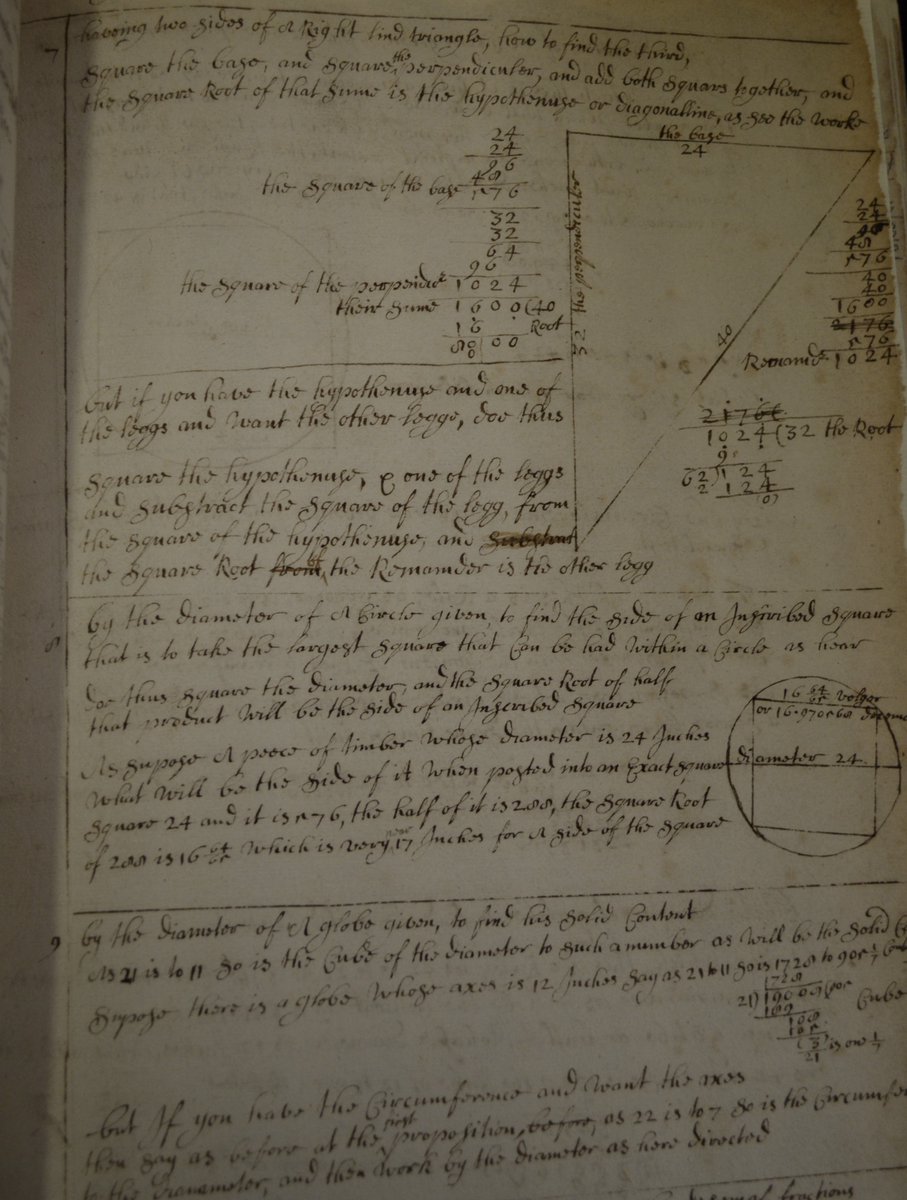 7 haveing two sides of A Right lind triangle, how to find the third,
Square the base, and Square the perpendiculer, and add both Squars together, and
the Square Root of that Sume is the hypothenuse or diagonalline, as see the Worke
24
24
96
the Square of the base 48
576
32
32
64
96
the Square of the perpendic 1024
their Sume 1600 (40
16 Root
80 00
the base
24
32 the perpendiculer
40
24
24
48
576
40
40
1600
2176
576
Remainde 1024
1024 (32 the Root
9
62) 124
2 124
0
but if you have the hypothenuse and one of
the leggs and Want the other legge, doe thus
Square the hypothenuse, & one of the leggs
and Substract the Square of the legg, from
the Square of the hypothenuse, and Substract
the Square Root from of the Remainder is the other legg
8 by the diameter of A Circle given, to find the Side of an Inscribed Square
that is to take the largest Square that Can be had Within a Circle as hear
doe thus Square the diameter, and the Square Root of half
that product Will be the Side of an Inscribed Square
As Supose A peece of timber Whose diameter is 24 Inches
What Will be the Side of it When posted into an Exact Square
Square 24 and it is 576, the half of it is 288, the Square Root
of 288 is 16 Which is very near 17 Inches for A Side of the Square
16 volger
or 16.970568
diameter 24
9 by the diameter of A globe given, to find his Solid Content
As 21 is to 11 So is the Cube of the diameter to Such a number as Will be the Solid
Supose there is a globe Whose axes is 12 Inches Say as 21 to 11 So is 1728 to 905 1/7
1728
21) 19008 (905 Cube
189
108
105
3
21 is one 1/7
but If you have the Circumference and Want the axes
then Say as before at the first proposition before, as 22 is to 7 So is the Circumfe
to the diameter, and then Work by the diameter as here directed
fractions